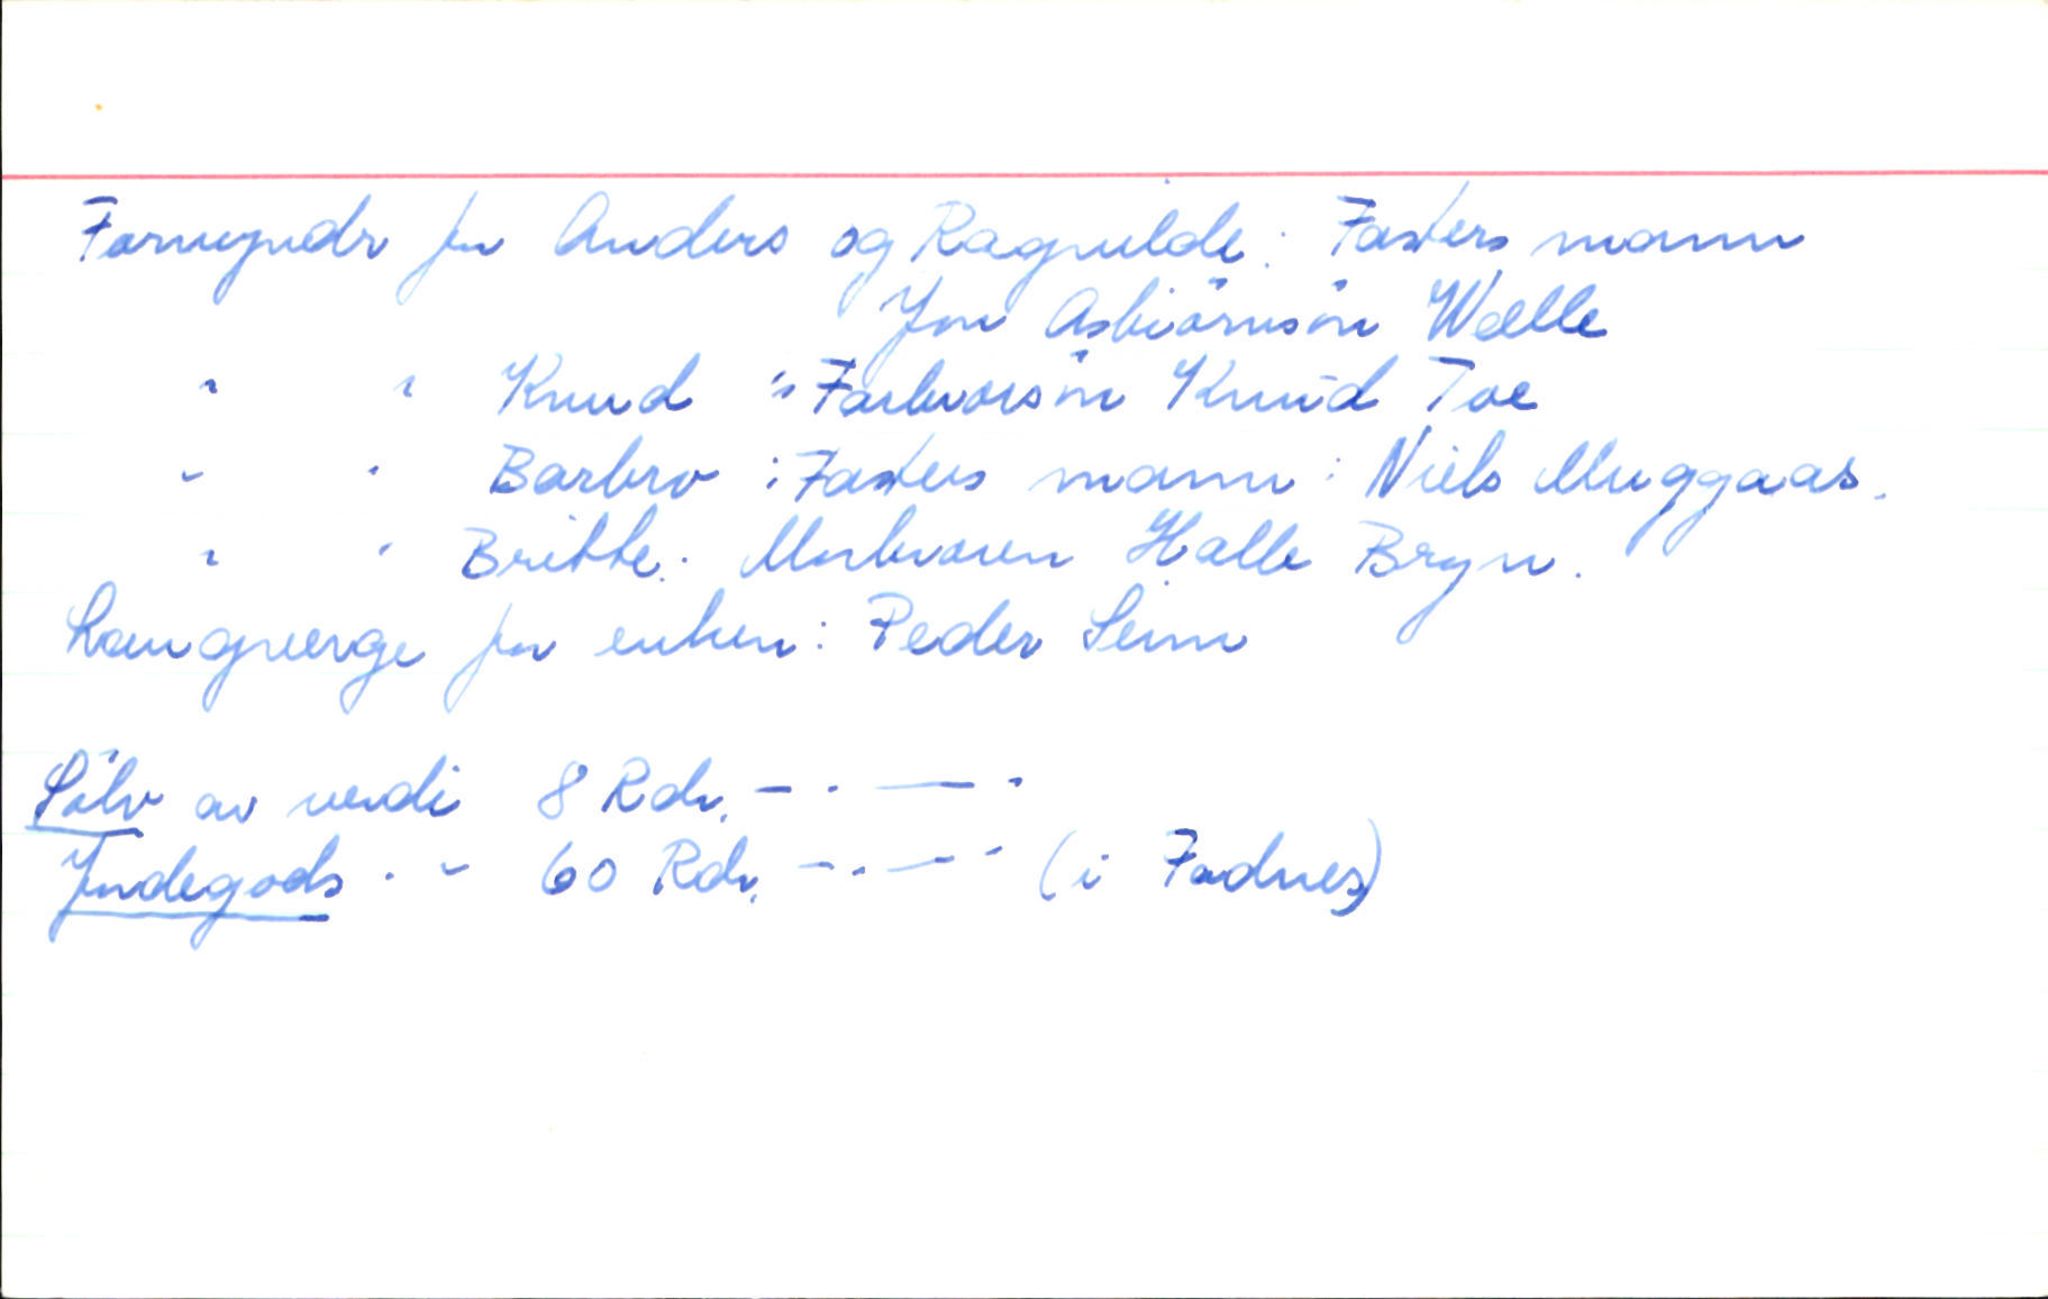 Formyndr for Anders og Ragnilde: Fasters mann
Jon Asbiörnsön Wælle
" " Knud : Farbrorsön Knud Toe
" " Barbro : Fasters mann : Niels Muggaas.
" " Britte. Morbroren Halle Bryn.
Laugverge for enken: Peder Seim
Sölv av verdi 8 Rdr. - . — .
Jordegods . " 60 Rdr. - . — . (i Fadnes)